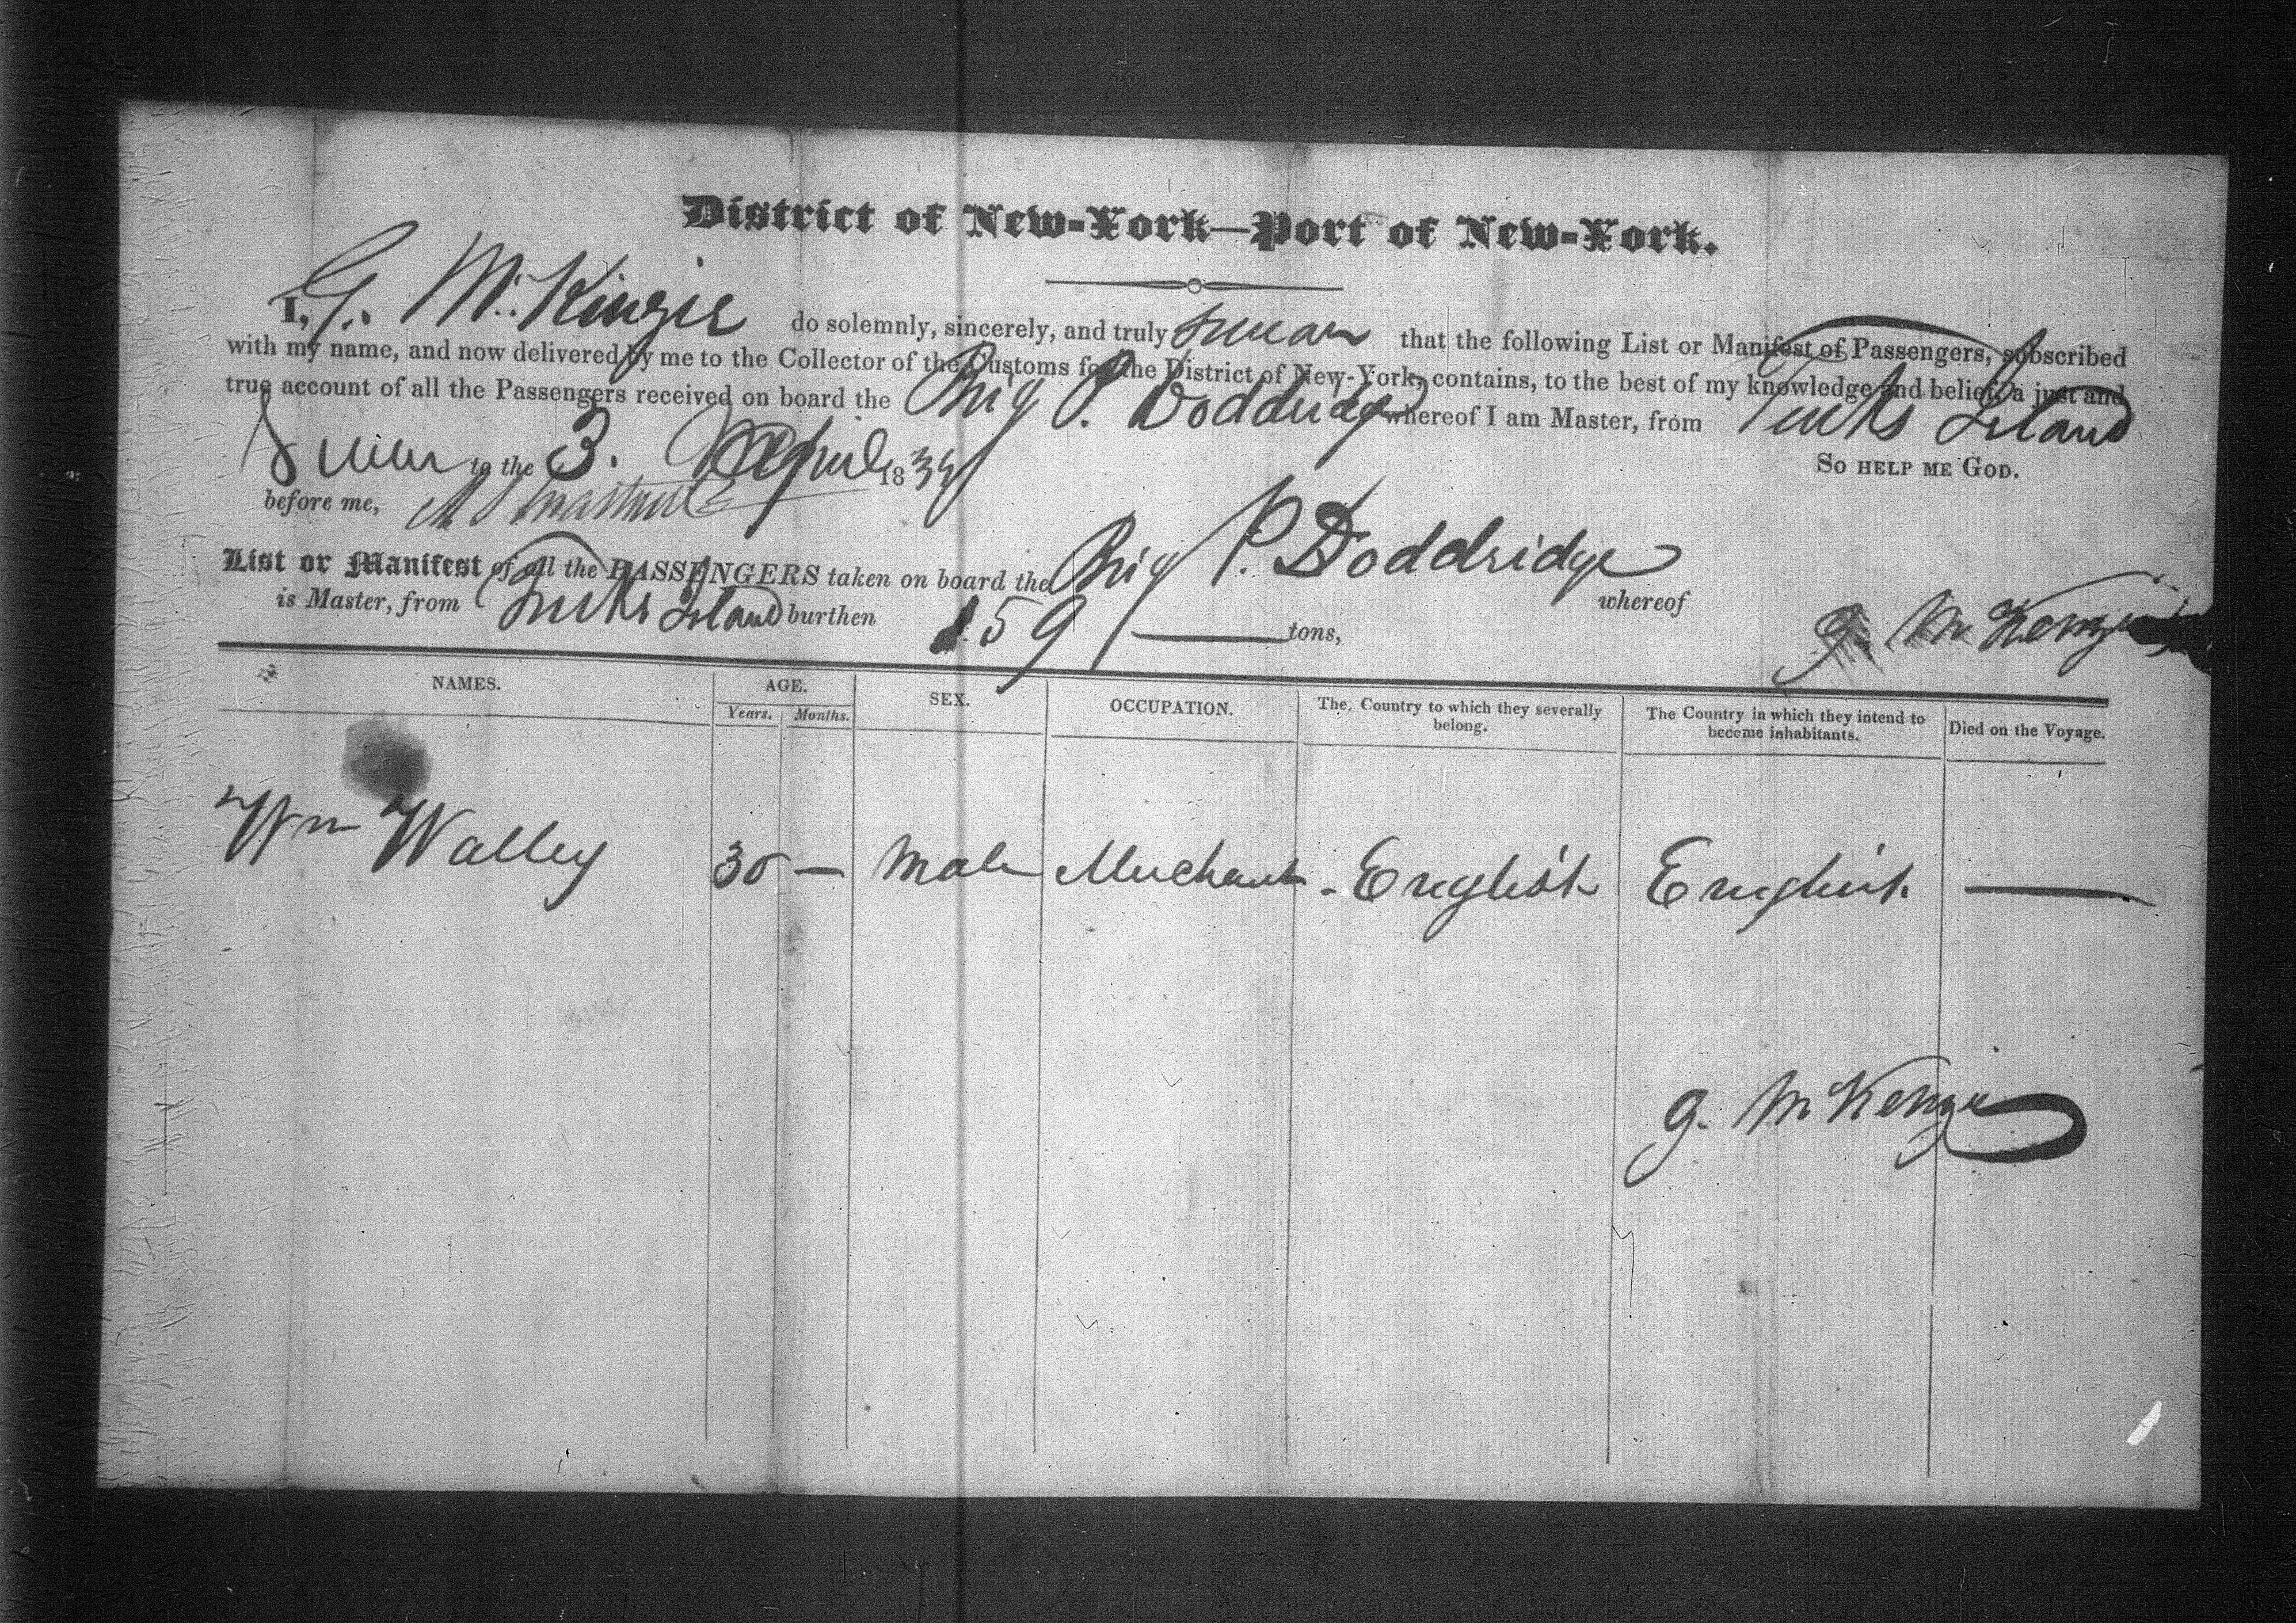 District of New-York—Port of New-York.
I, G. McKinzie do solemnly, sincerely, and truly swear that the following List or Manifest of Passengers, subscribed
with my name, and now delivered by me to the Collector of the Customs for the District of New-York, contains, to the best of my knowledge and belief, a just and
true account of all the Passengers received on board the Brig P. Doddridge whereof I am Master, from Turks Island
Sworn to the 3. April 1834 So help me God.
before me,
List or Manifest of all the PASSENGERS taken on board the Brig P. Doddridge whereof G. McKenzie
is Master, from Turks Island burthen 159 tons,
NAMES. AGE. SEX. OCCUPATION. The Country to which they severally belong. The Country in which they intend to become inhabitants. Died on the Voyage.
Years. Months.
Wm Walley 30 — Male Merchant - English English —
G. McKenzie